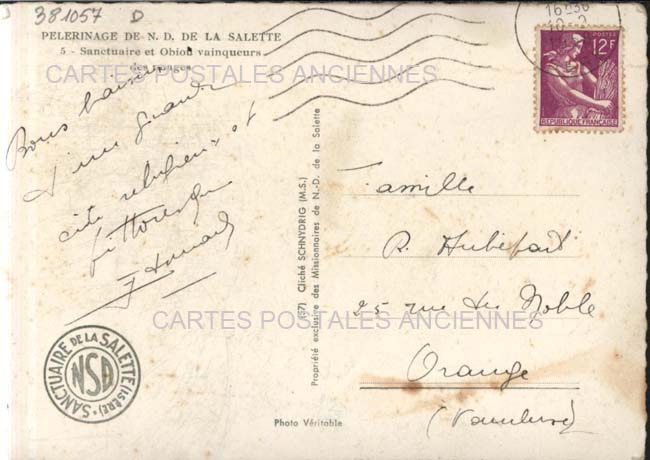 381057 D
PELERINAGE DE N. D. DE LA SALETTE
5 - Sanctuaire et Obiou vainqueurs
des nuages
CARTES POSTALES ANCIENNES
Bons baisers
d'une grande
cité religieuse et
pittoresque
SANCTUAIRE DE LA SALETTE (ISÈRE)
NSD
(57) Cliché SCHNYDRIG (M.S.)
Propriété exclusive des Missionnaires de N.-D. de la Salette
Photo Véritable
16 30
POSTES
12F
REPUBLIQUE FRANÇAISE
Famille
R.
25 rue du Noble
Orange
(Vaucluse)
CARTES POSTALES ANCIENNES